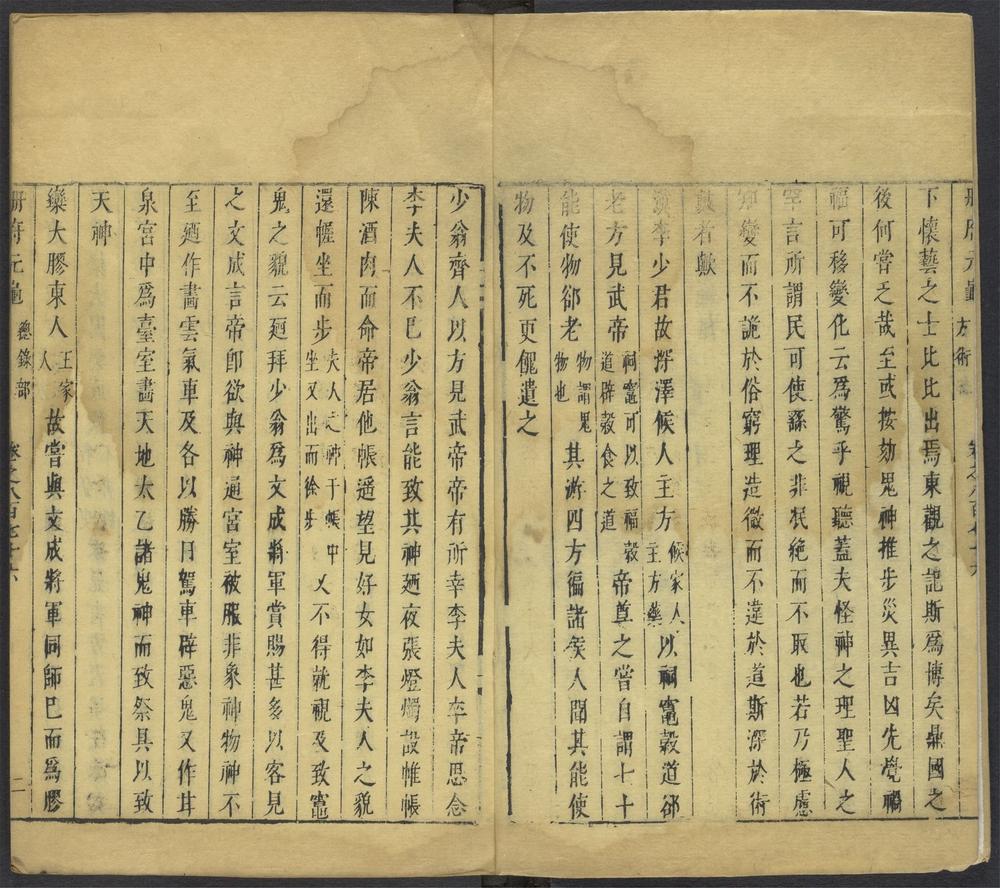 冊府元龜 方術 卷之八百七十六
下懷藝之士比比出焉東觀之記斯爲博矣鼎國之
後何嘗乏哉至或按劾鬼神推步災異吉凶先覺禍
福可移變化云爲驚乎視聽蓋夫怪神之理聖人之
罕言所謂民可使繇之非泯絶而不取也若乃極慮
知變而不詭於俗窮理造微而不違於道斯深於術
數者歟
漢李少君故深澤候人主方候家人主方藥以祠竈穀道卻
老方見武帝祠竈可以致福穀道辟穀食之道帝尊之嘗自謂七十
能使物卻老物謂鬼物也其游四方徧諸侯人聞其能使
物及不死更饋遺之
少翁齊人以方見武帝帝有所幸李夫人卒帝思念
李夫人不巳少翁言能致其神廼夜張燈燭設帷帳
陳酒肉而命帝居他帳遥望見好女如李夫人之貌
還幄坐而步夫人之神于帳中坐又出而徐步又不得就視及致竈
鬼之貌云廼拜少翁爲文成將軍賞賜甚多以客見
之文成言帝卽欲與神通宮室被服非象神物神不
至廼作畵雲氣車及各以勝日駕車辟惡鬼又作甘
泉宮中爲臺室畵天地太乙諸鬼神而致祭具以致
天神
欒大膠東人王家人故嘗與文成將軍同師巳而爲膠
冊府元龜 總錄部 卷之八百七十六 二